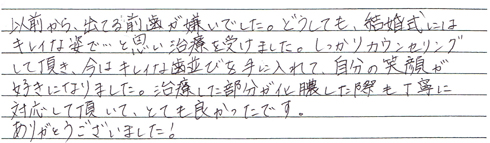 以前から、出てる前歯が嫌いでした。どうしても、結婚式には
キレイな姿で…と思い治療を受けました。しっかりカウンセリング
して頂き、今はキレイな歯並びを手に入れて、自分の笑顔が
好きになりました。治療した部分が化膿した際も丁寧に
対応して頂いて、とても良かったです。
ありがとうございました!